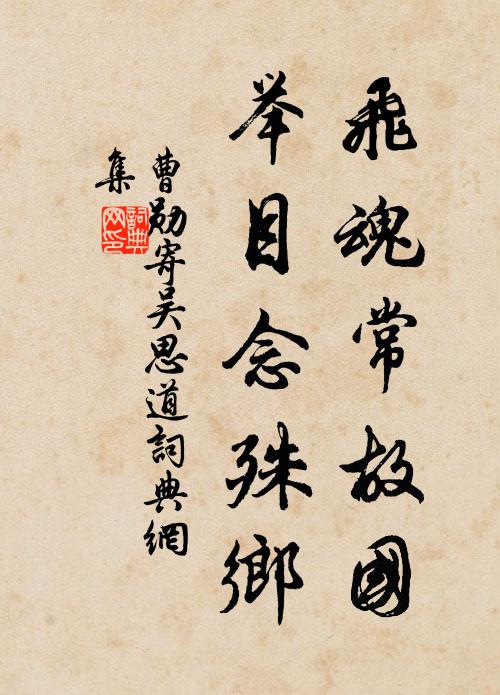 飛魂常故國
举目念殊鄉
曹勛寄吴思道詞典網
集
詞典
网印